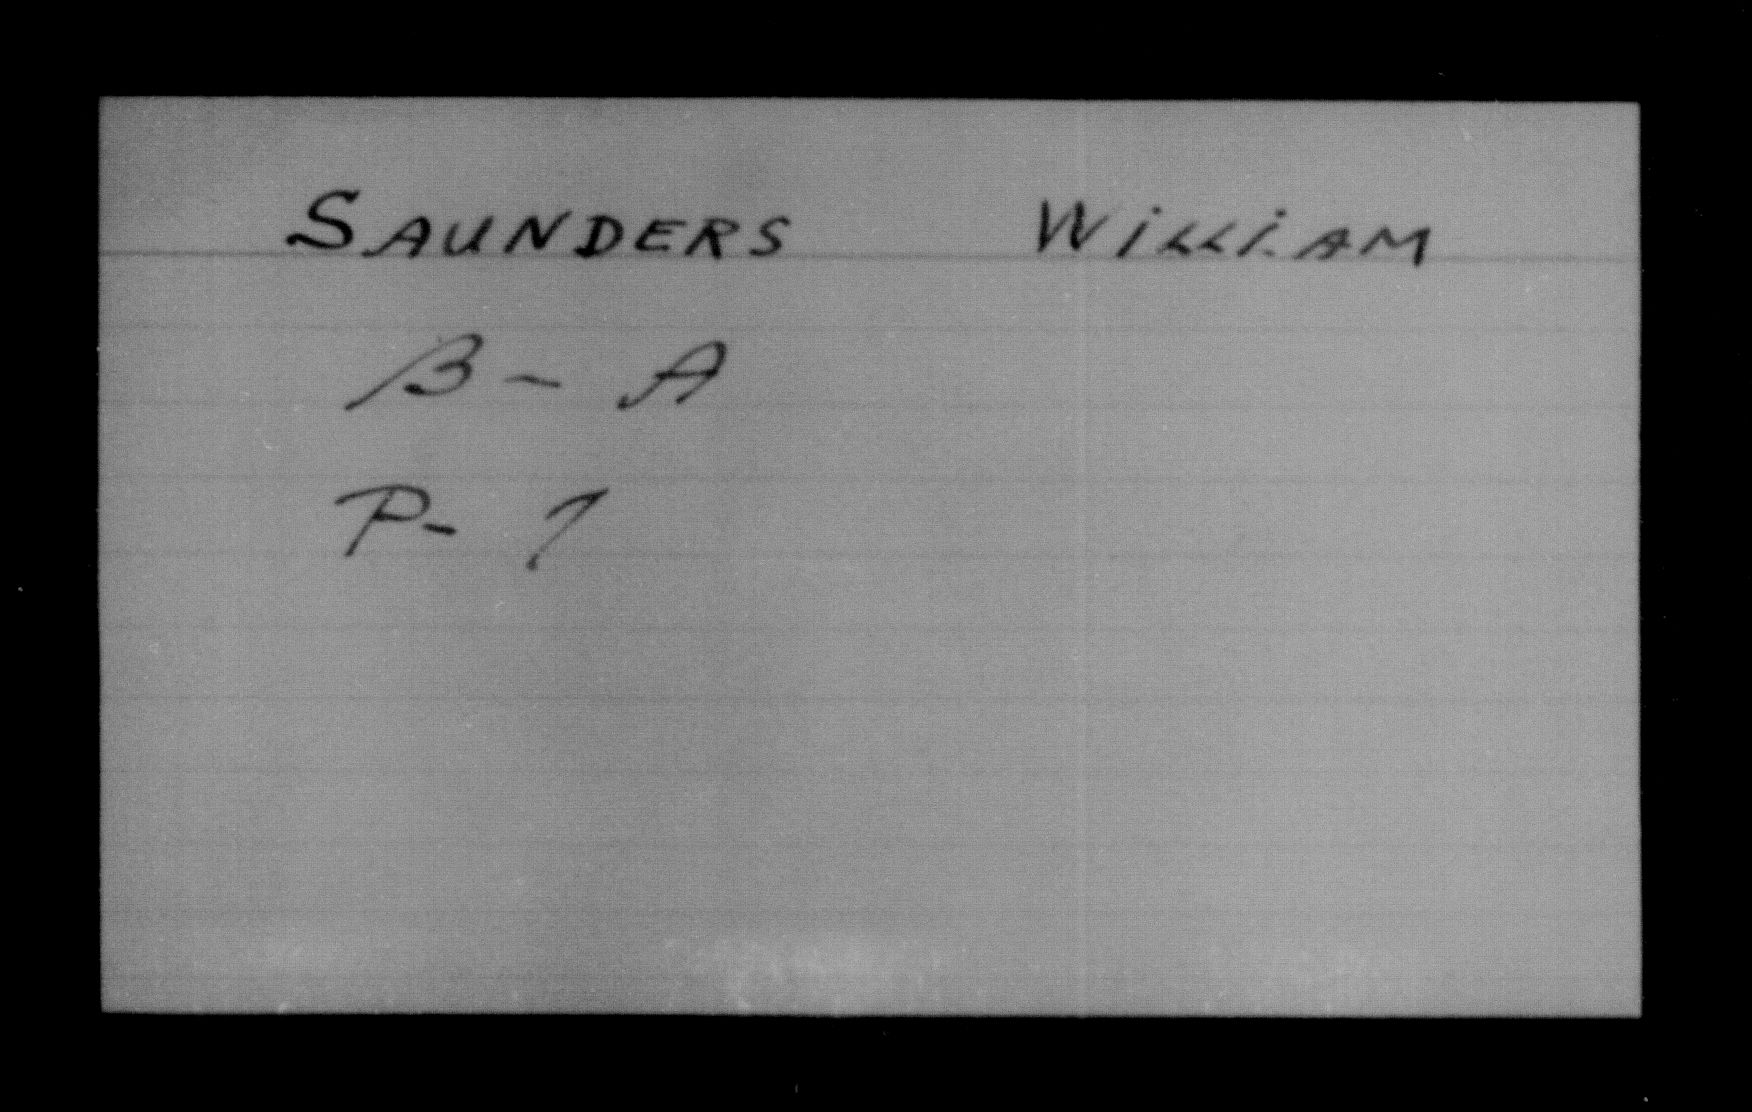 SAUNDERS WILLIAM
B - A
P - 7